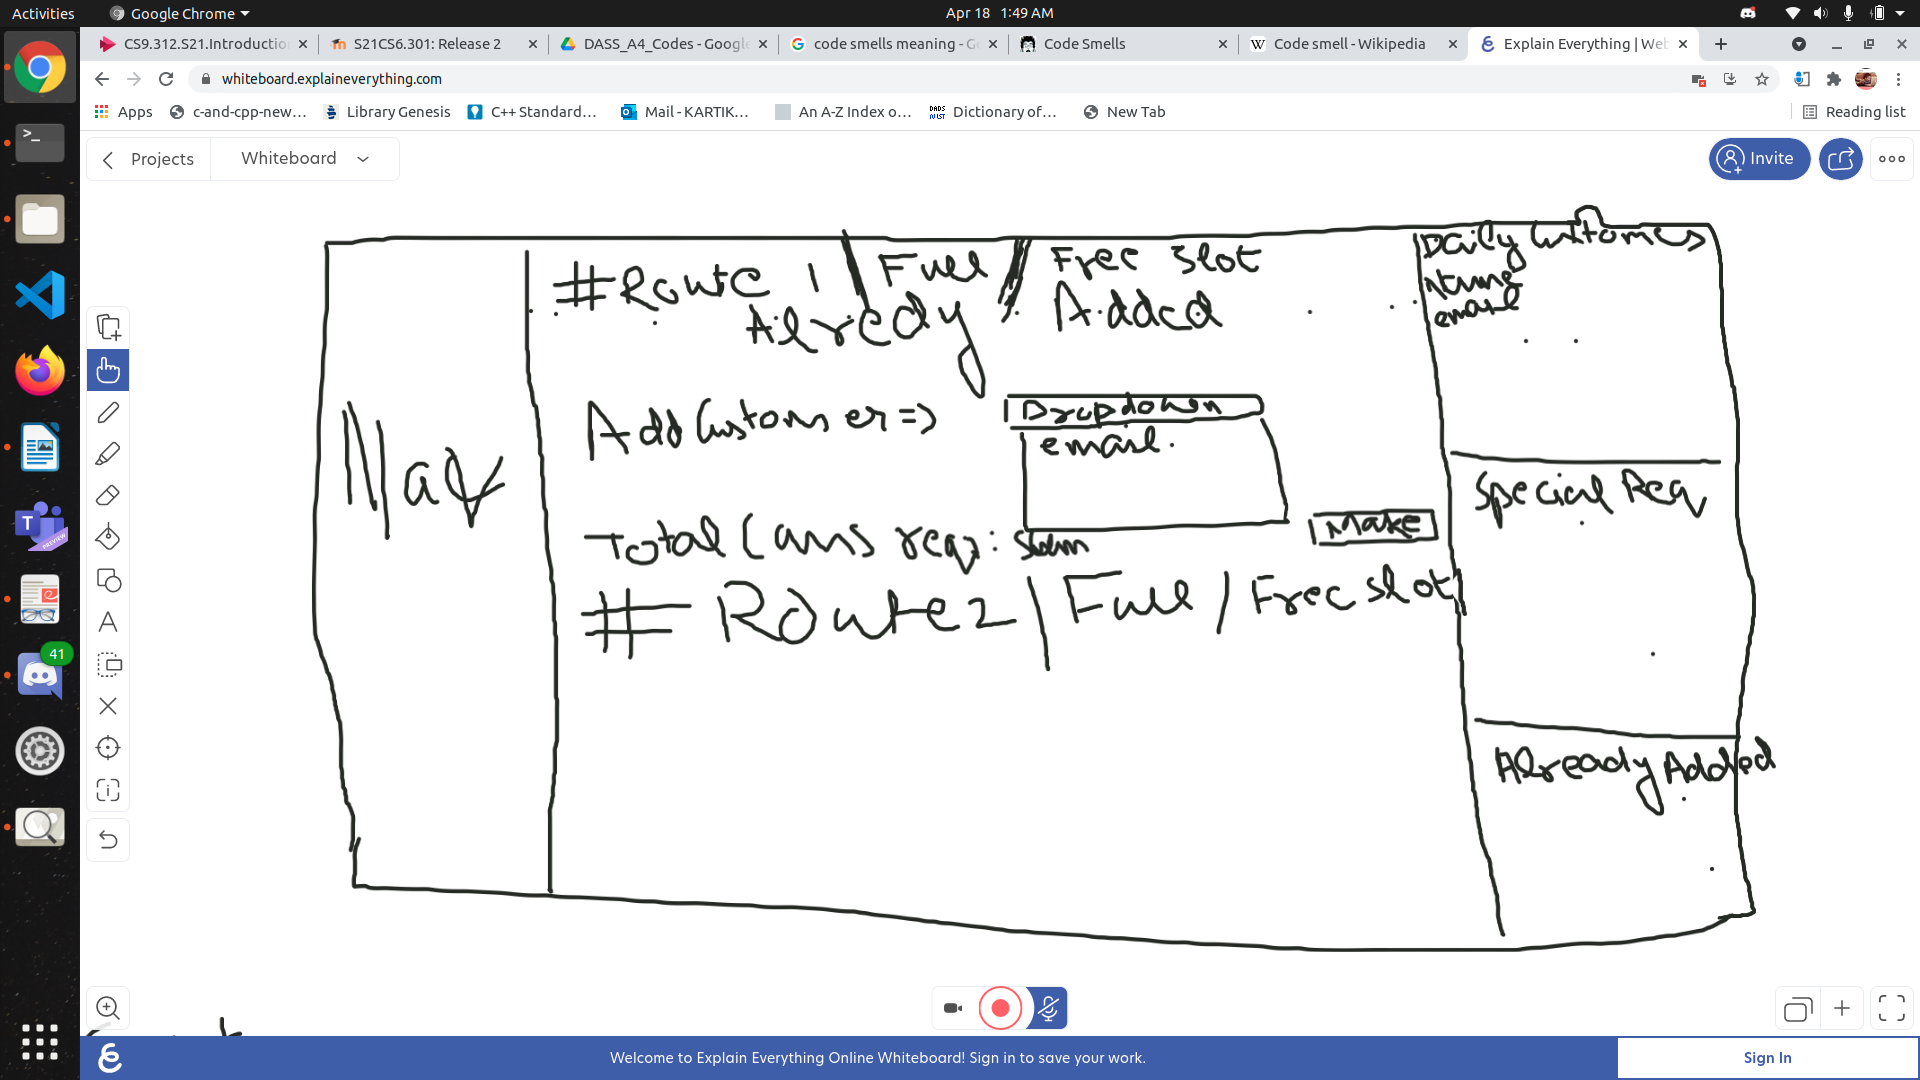 Activities
Google Chrome
Apr 18 1:49 AM
CS9.312.S21.Introductio
S21CS6.301: Release 2
DASS_A4_Codes - Google
code smells meaning - G
Code Smells
Code smell - Wikipedia
Explain Everything | Web
whiteboard.explaineverything.com
Apps
c-and-cpp-new…
Library Genesis
C++ Standard…
Mail - KARTIK…
An A-Z Index o…
Dictionary of…
New Tab
Reading list
Projects
Whiteboard
Invite
41
Nav
#Route 1 | Full / Free Slot
Alredy Added
Add Customer =>
Dropdown
email.
Total Cans req:
Make
# Route 2 / Full / Free slot
Daily Customers
Name
email
Special Req
Already Added
Welcome to Explain Everything Online Whiteboard! Sign in to save your work.
Sign In